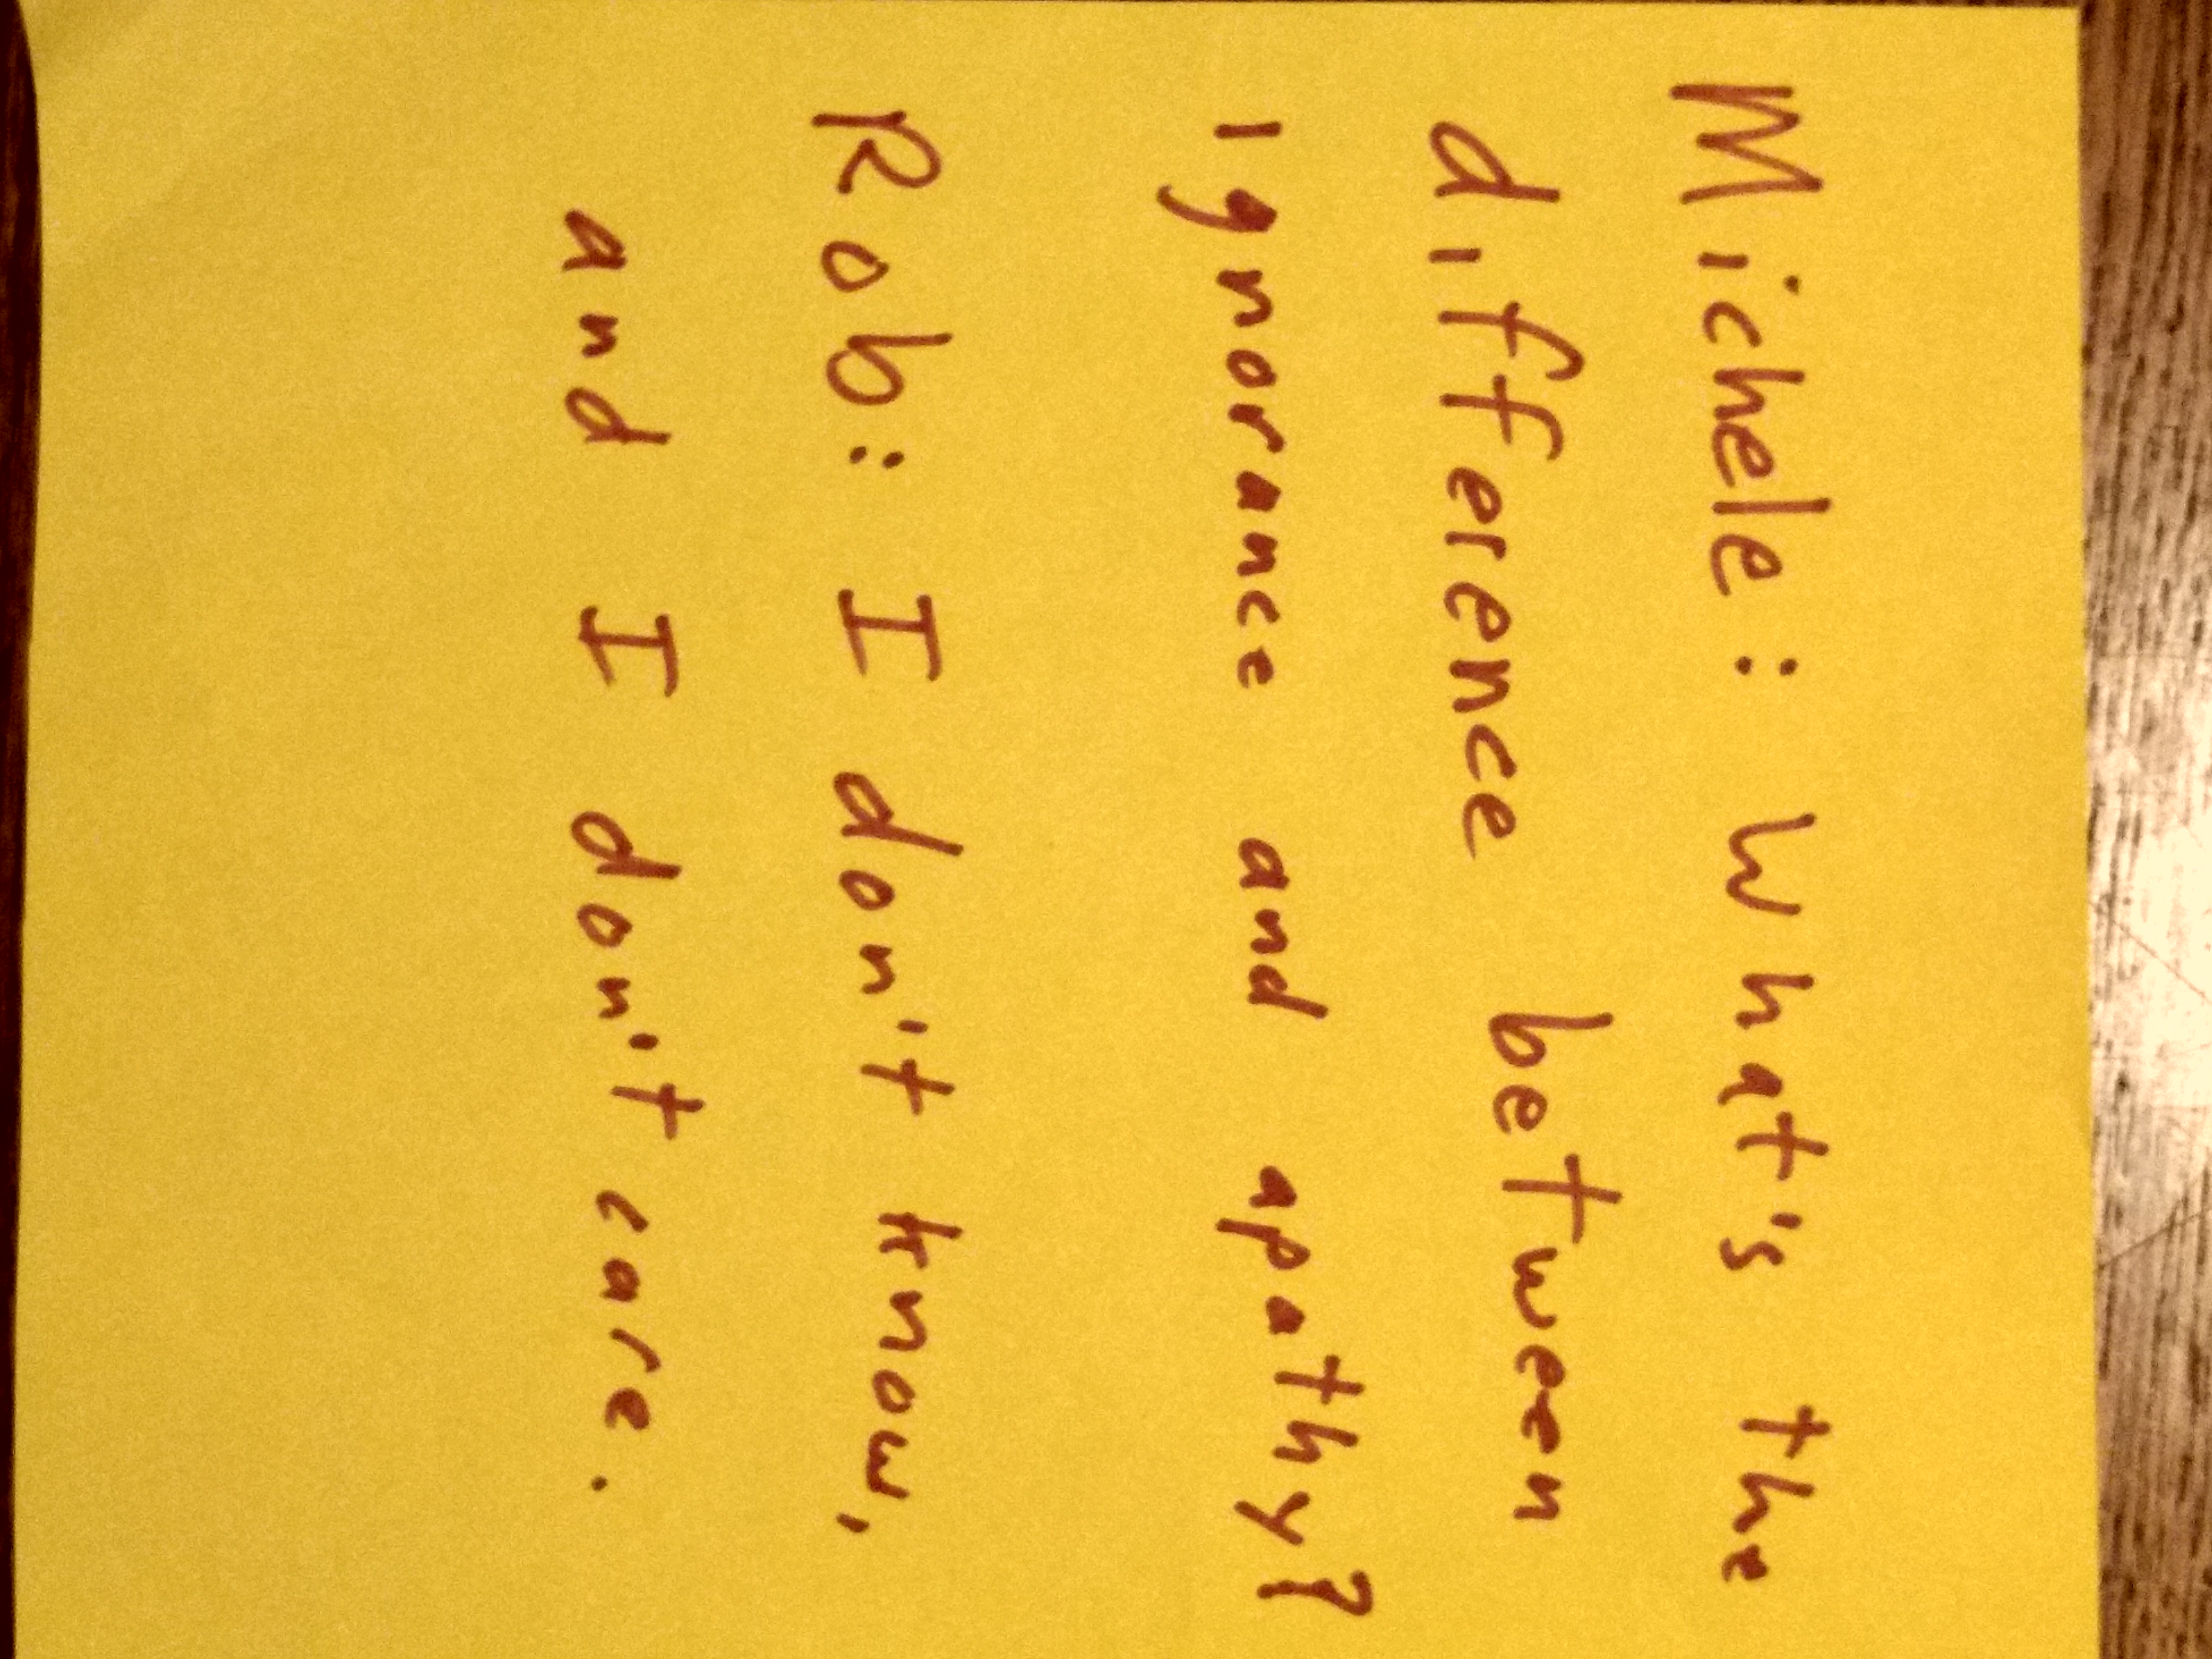 Michele: What's the
difference between
ignorance and apathy?
Rob: I don't know,
and I don't care.